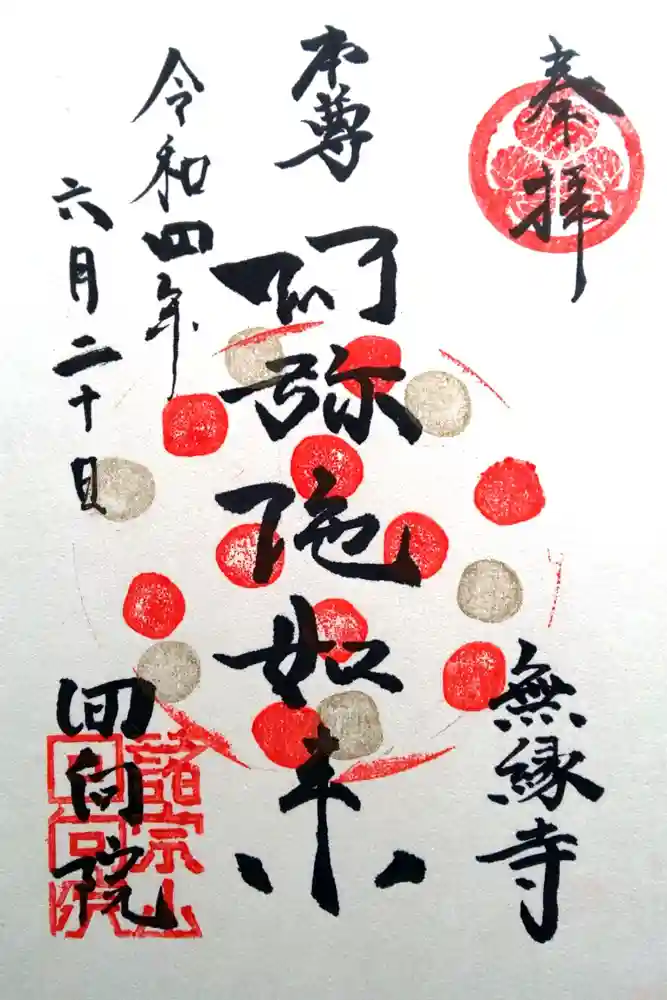 奉拝
無縁寺
本尊
阿弥陀如来
令和四年
六月二十日
回向院
諸宗山
回向院